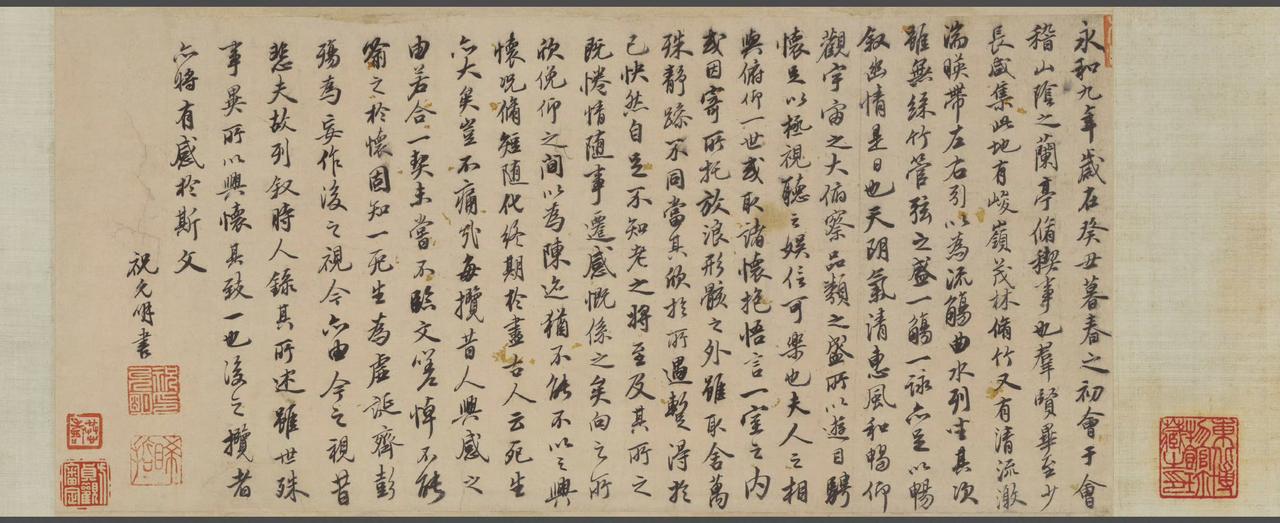 永和九年歲在癸丑暮春之初會于會
稽山陰之蘭亭脩稧事也羣賢畢至少
長咸集此地有峻嶺茂林脩竹又有清流激
湍暎帶左右引以為流觴曲水列坐其次
雖無絲竹管弦之盛一觴一詠亦足以暢
叙幽情是日也天朗氣清惠風和暢仰
觀宇宙之大俯察品類之盛所以遊目騁
懷足以極視聽之娛信可樂也夫人之相
與俯仰一世或取諸懷抱悟言一室之內
或因寄所托放浪形骸之外雖取舍萬
殊靜躁不同當其欣於所遇蹔得於
己快然自足不知老之將至及其所之
既惓情隨事遷感慨係之矣向之所
欣俛仰之間以為陳迹猶不能不以之興
懷況脩短隨化終期於盡古人云死生
亦大矣豈不痛哉每攬昔人興感之
由若合一契未嘗不臨文嗟悼不能
喻之於懷固知一死生為虛誕齊彭
殤為妄作後之視今亦由今之視昔
悲夫故列叙時人錄其所述雖世殊
事異所以興懷其致一也後之攬者
亦將有感於斯文
祝允明書
東北博物館珍藏之印